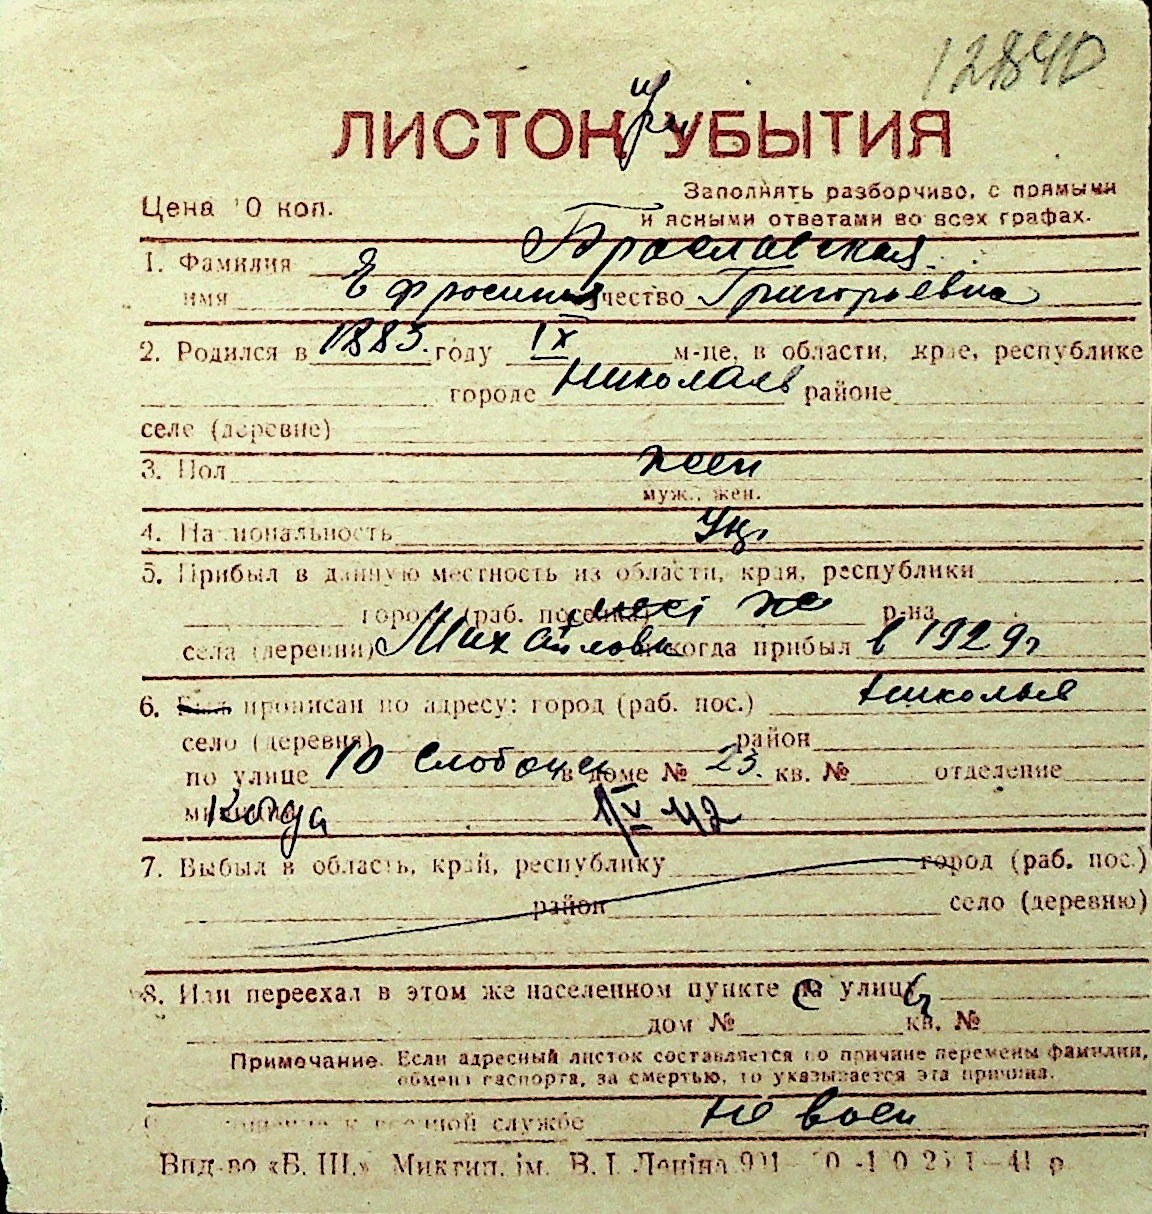 12840
ЛИСТОК при УБЫТИЯ
Цена 10 коп.
Заполнять разборчиво, с прямыми
и ясными ответами во всех графах.
1. Фамилия Брославская
имя Ефросинья отчество Григорьевна
2. Родился в 1883. году IX м-це, в области, крае, республике
городе Николаев районе
селе (деревне)
3. Пол жен
муж., жен.
4. Национальность Укр.
5. Прибыл в данную местность из области, края, республики
город (раб. поселка) же р-на
села (деревни) Михайловки и когда прибыл в 1929 г
6. Был прописан по адресу: город (раб. пос.) Николаев
село (деревня) район
по улице 10 Слободск в доме № 23. кв. № отделение
милиции Когда 1/V 42
7. Выбыл в область, край, республику город (раб. пос.)
район село (деревню)
8. Или переехал в этом же населенном пункте с улицы
дом № кв. №
Примечание. Если адресный листок составляется по причине перемены фамилии,
обмена паспорта, за смертью, то указывается эта причина.
службе не воен
Вид-во «Б. Ш.» Миктип. ім. В. І. Леніна